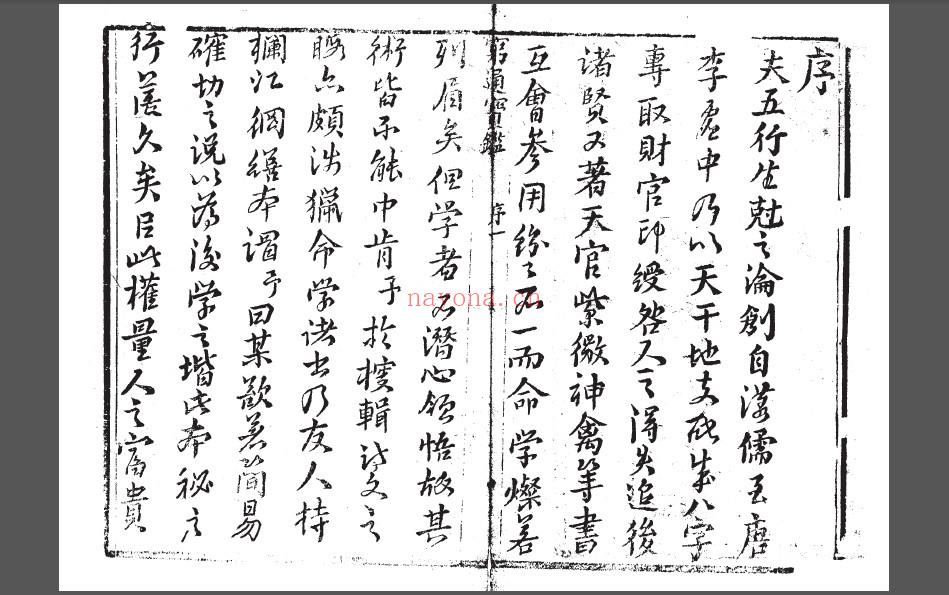 序
夫五行生尅之淪創自漢儒至唐
李虛中乃以天干地支配成八字
專取財官印綬咎人之得失追後
諸賢又著天官紫微神禽等書
互會參用紛〻不一而命學燦若
窮通寶鑑 序一
列眉矣但學者不潛心領悟故其
術皆不能中肯予於搜輯試文之
暇亦頗涉獵命學諸書乃友人持
攔江網繕本謂予曰某欲著簡易
確切之說以為後學之楷此本秘之
行篋久矣以此權量人之富貴
nayona.cn